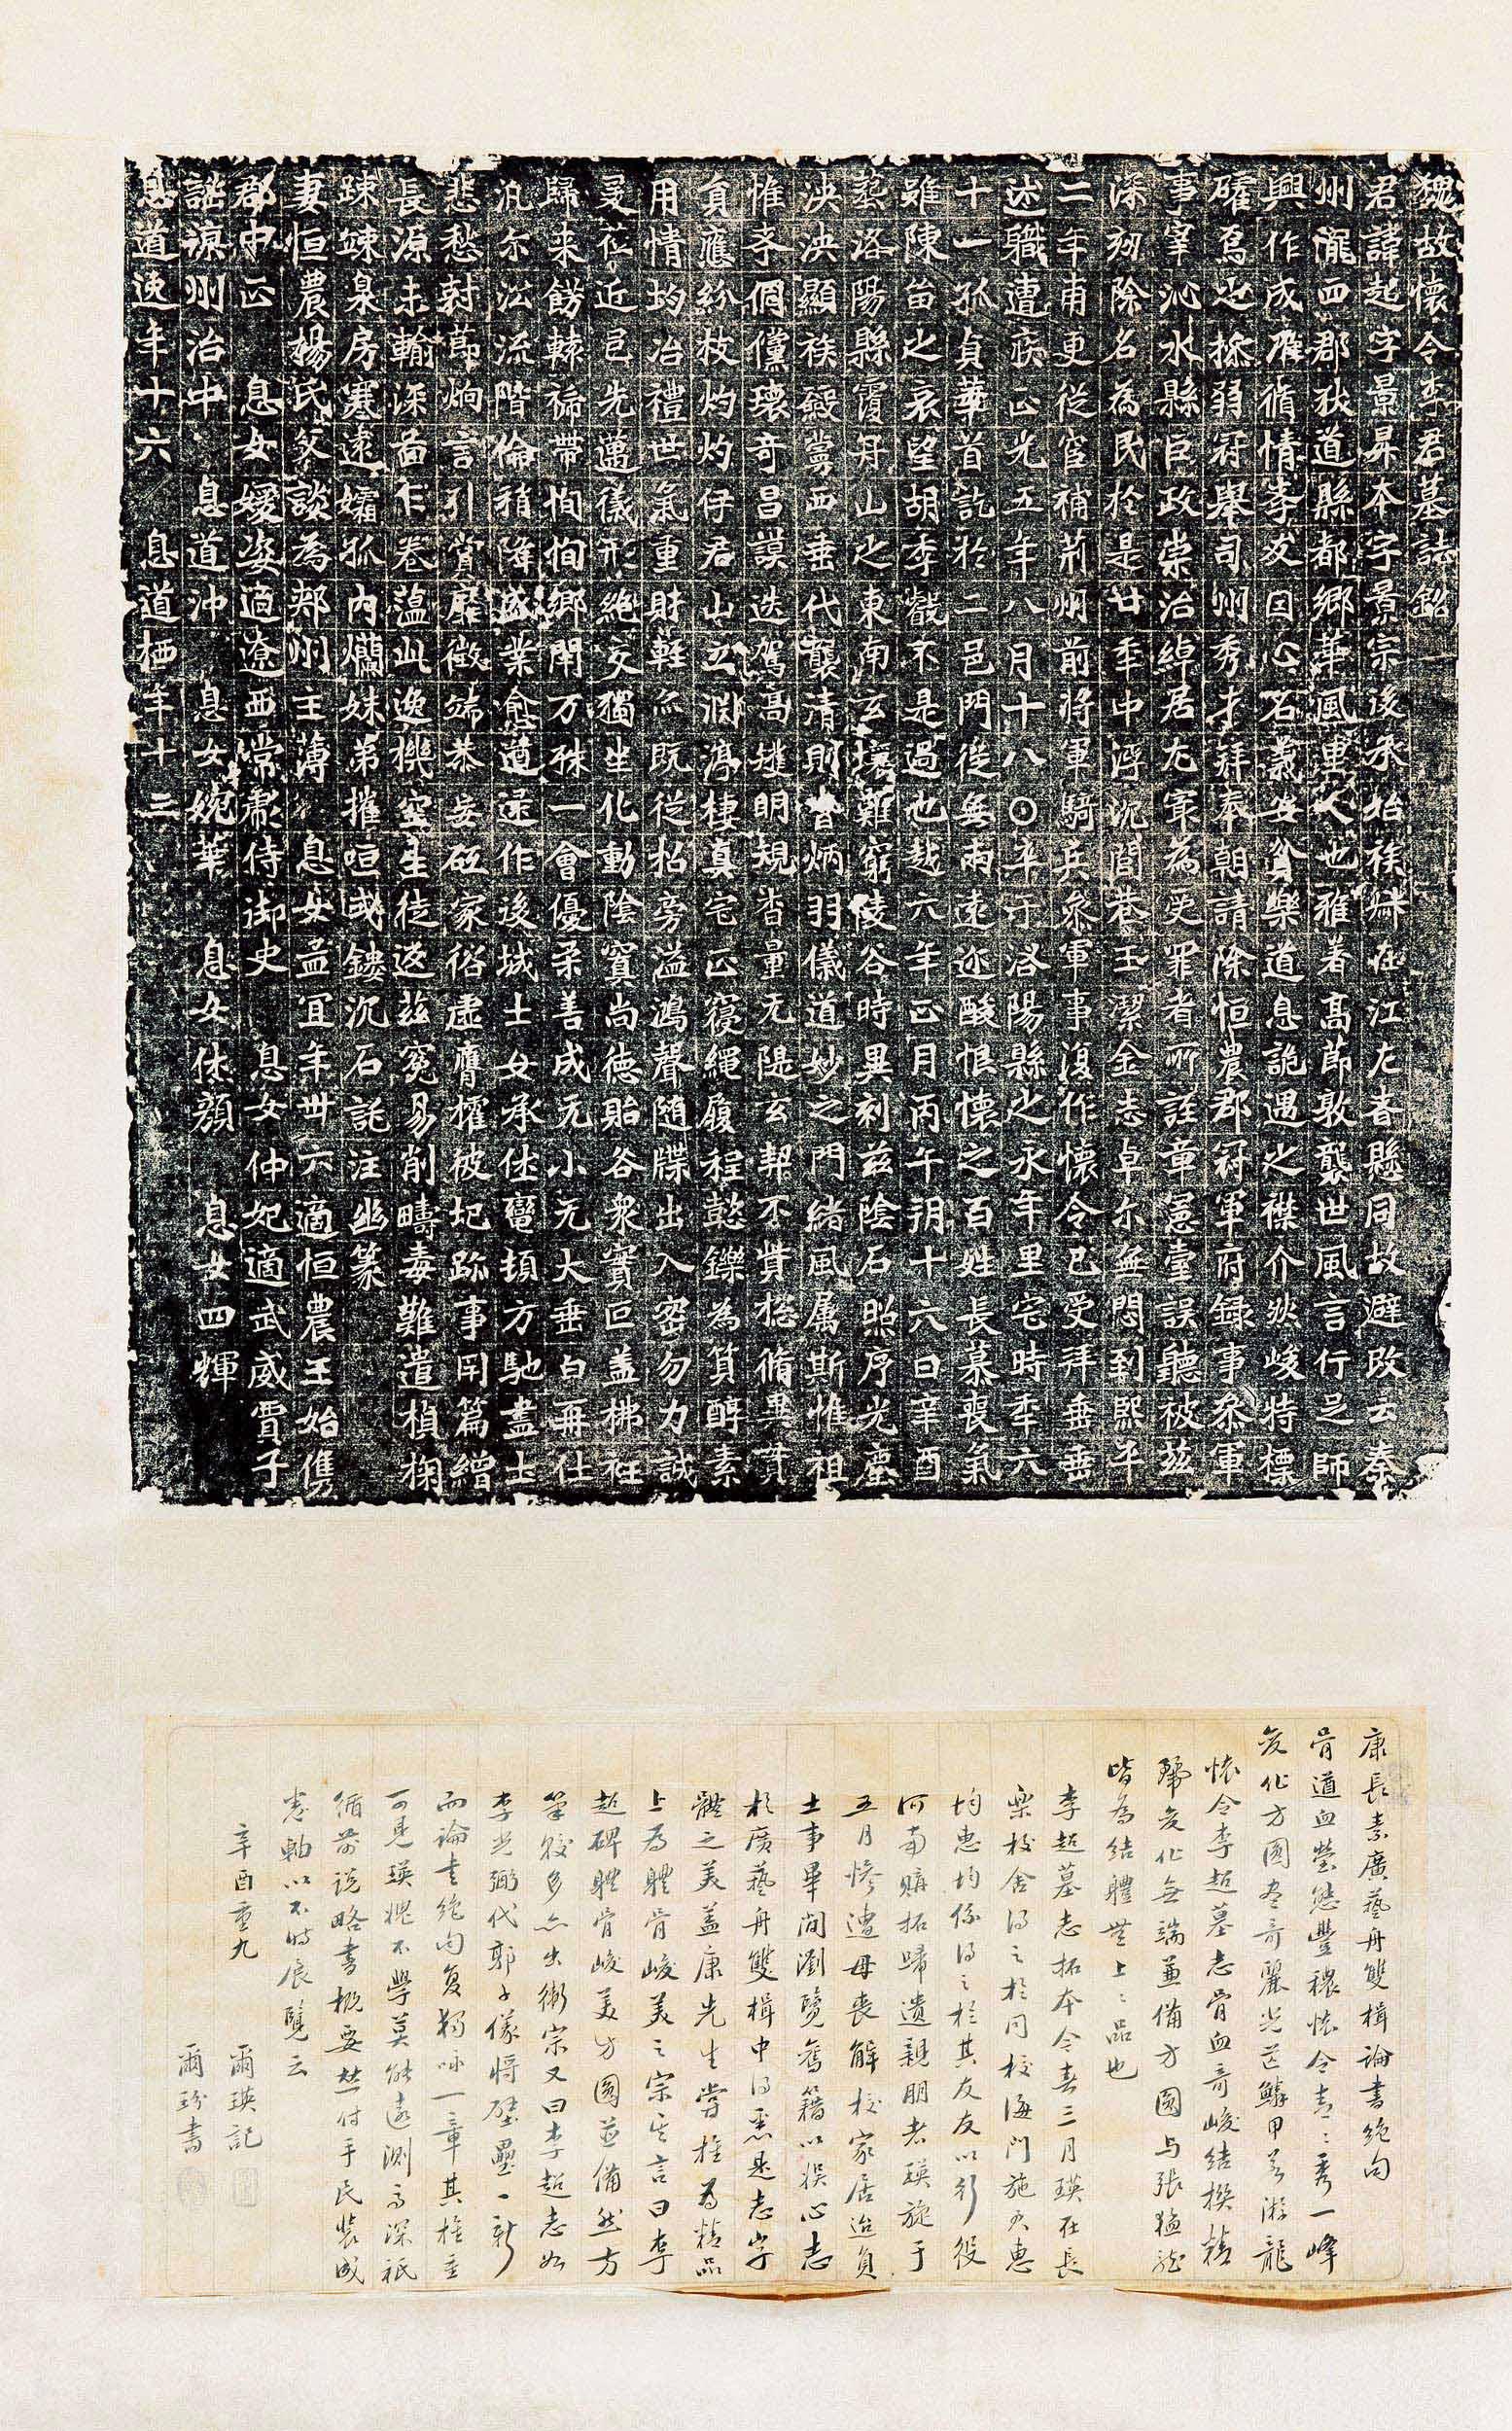 魏故懷令李君墓誌銘
君諱起字景昇本字景宗後承始族緣在江左者懸同故避改云秦
州隴西郡狄道縣都鄉華風里人也雅著高節敦襲世風言行足師
興作成准循情孝友因心名義安貧樂道息詭遇之襟介然峻特標
礭焉也撫弱冠舉司州秀才拜奉朝請除恒農郡冠軍府錄事參軍
事宰沁水縣巨政崇治綽居尤最為受罪者所誣章憲臺誤聽被茲
深劾除名為民於是廿年中浮沉閭巷玉潔金志卓尒無悶到熙平
二年甫更從宦補荊州前將軍騎兵參軍事復作懷令已受拜垂垂
述職遭疾正光五年八月十八⊙卒于洛陽縣之永年里宅時年六
十一孤貞華首訖於二邑門從無兩遠迩酸恨懷之百姓長慕喪氣
雖陳笛之哀望胡季覩不是過也越六年正月丙午朔十六日辛酉
塟洛陽縣覆舟山之東南玄壤難窮陵谷時異刻茲陰石照序光塵
泱泱顯族薎冀西垂代襲清則昔炳羽儀道妙之門緒風属斯惟祖
惟孝倜儻瓌奇昌謨迭駕高雄明規沓量无隄玄契不貲揔脩異貫
負應紛枝灼灼伃君山立淵渟棲真宅正寢繩履程懿鑠為質醇素
用情均冶禮世氣重財輕爫既從招旁溢鴻聲随牒出入密勿力誠
爰莅近邑先邁儀形絶交獨坐化動陰賓尚德貽谷眾實叵盖拂袵
歸来餝棘褅帶恂恂鄉閈万殊一會優柔善成无小无大垂白再仕
汎尒泣流階倫稍降盛業逾遒遠作後城士女承佳鸞頓方馳盡士
悲愁對節炯言引賞靡徵端恭妄砡家俗虛膺權被圯跡事用篇繒
長源未輸深畱乍卷薀此逸機空生徒返茲冤易削疇毒難遣楨掬
踈竦臯房寒遠孀狐内爛妹弟摧咺或鏤沉石託注幽篆
妻恒農楊氏父談為郏州主薄　息女孟宜年卅六適恒農王始儁
郡中正　息女媛姿適遼西常肅侍御史　息女仲妃適武威賈子
謐涼州治中　息道沖　息女婉華　息女休顏　息女四輝
息道逸年十六　息道栖年十三
康長素廣藝舟雙楫論書絶句
骨道血瑩態豐穠懷令青青秀一峰
變化方圓盡奇麗光芒鱗甲若游龍
懷令李超墓志骨血奇峻結撰精
嚴變化無端兼備方圓与張猛龍
皆為結體無上上品也
李超墓志拓本今春三月瑛在長
樂校舍得之於同校海門施君惠
均惠均係得之於其友友以行役
河南購拓歸遺親朋者瑛旋于
五月慘遭母喪解校家居迨負
土事畢閒瀏覽舊籍以娛心志
於廣藝舟雙楫中得悉是志字
體之美蓋康先生嘗推為精品
上為體骨峻美之宗其言曰李
超碑體骨峻美方圓並備然方
筆較多亦出衛宗又曰李超志如
李光弼代郭子儀將壁壘一新
而論書絶句復獨咏一章其推重
可見瑛愧不學莫能遠測高深祇
循前説略書概要並付手民裝成
畫軸以不時展覽云
辛酉重九
爾瑛記
爾玢書